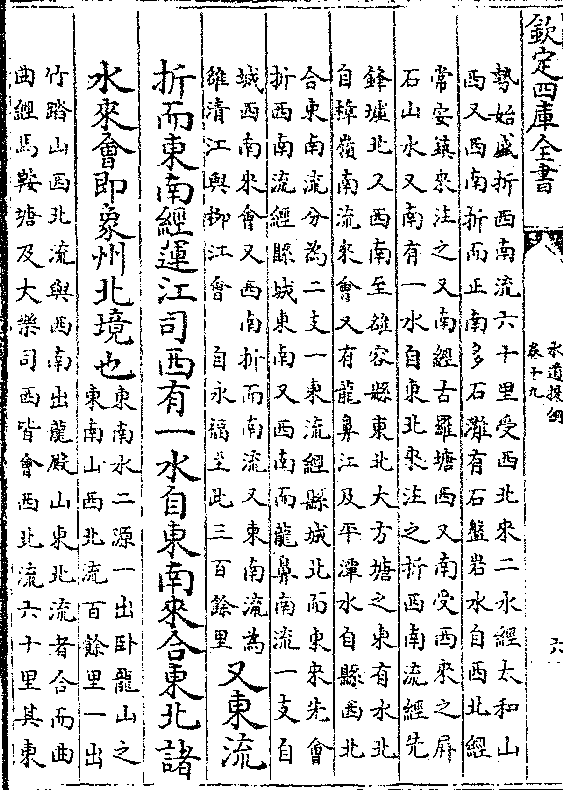 欽定四庫全書
水道提綱
卷十九
六
勢始盛折西南流六十里受西北來二水經太和山
西又西南折而正南多石灘有石盤岩水自西北經
常安鎮來注之又南經古羅塘西又南受西來之屏
石山水又南有一水自東北來注之折西南流經先
鋒墟北又西南至雄容縣東北大方塘之東有水北
自樟嶺南流來會又有龍鼻江及平潭水自縣西北
合東南流分為二支一東流經縣城北而東來先會
折西南流經縣城東南又西南而龍鼻南流一支自
城西南來會又西南折而南流又東南流為
雒清江與柳江會 自永福至此三百餘里
又東流
折而東南經運江司西有一水自東南來合東北諸
水來會即象州北境也
東南水二源一出卧龍山之
東南山西北流百餘里一出
竹踏山西北流與西南出龍殿山東北流者合而曲
曲經馬鞍塘及大樂司西皆會西北流六十里其東